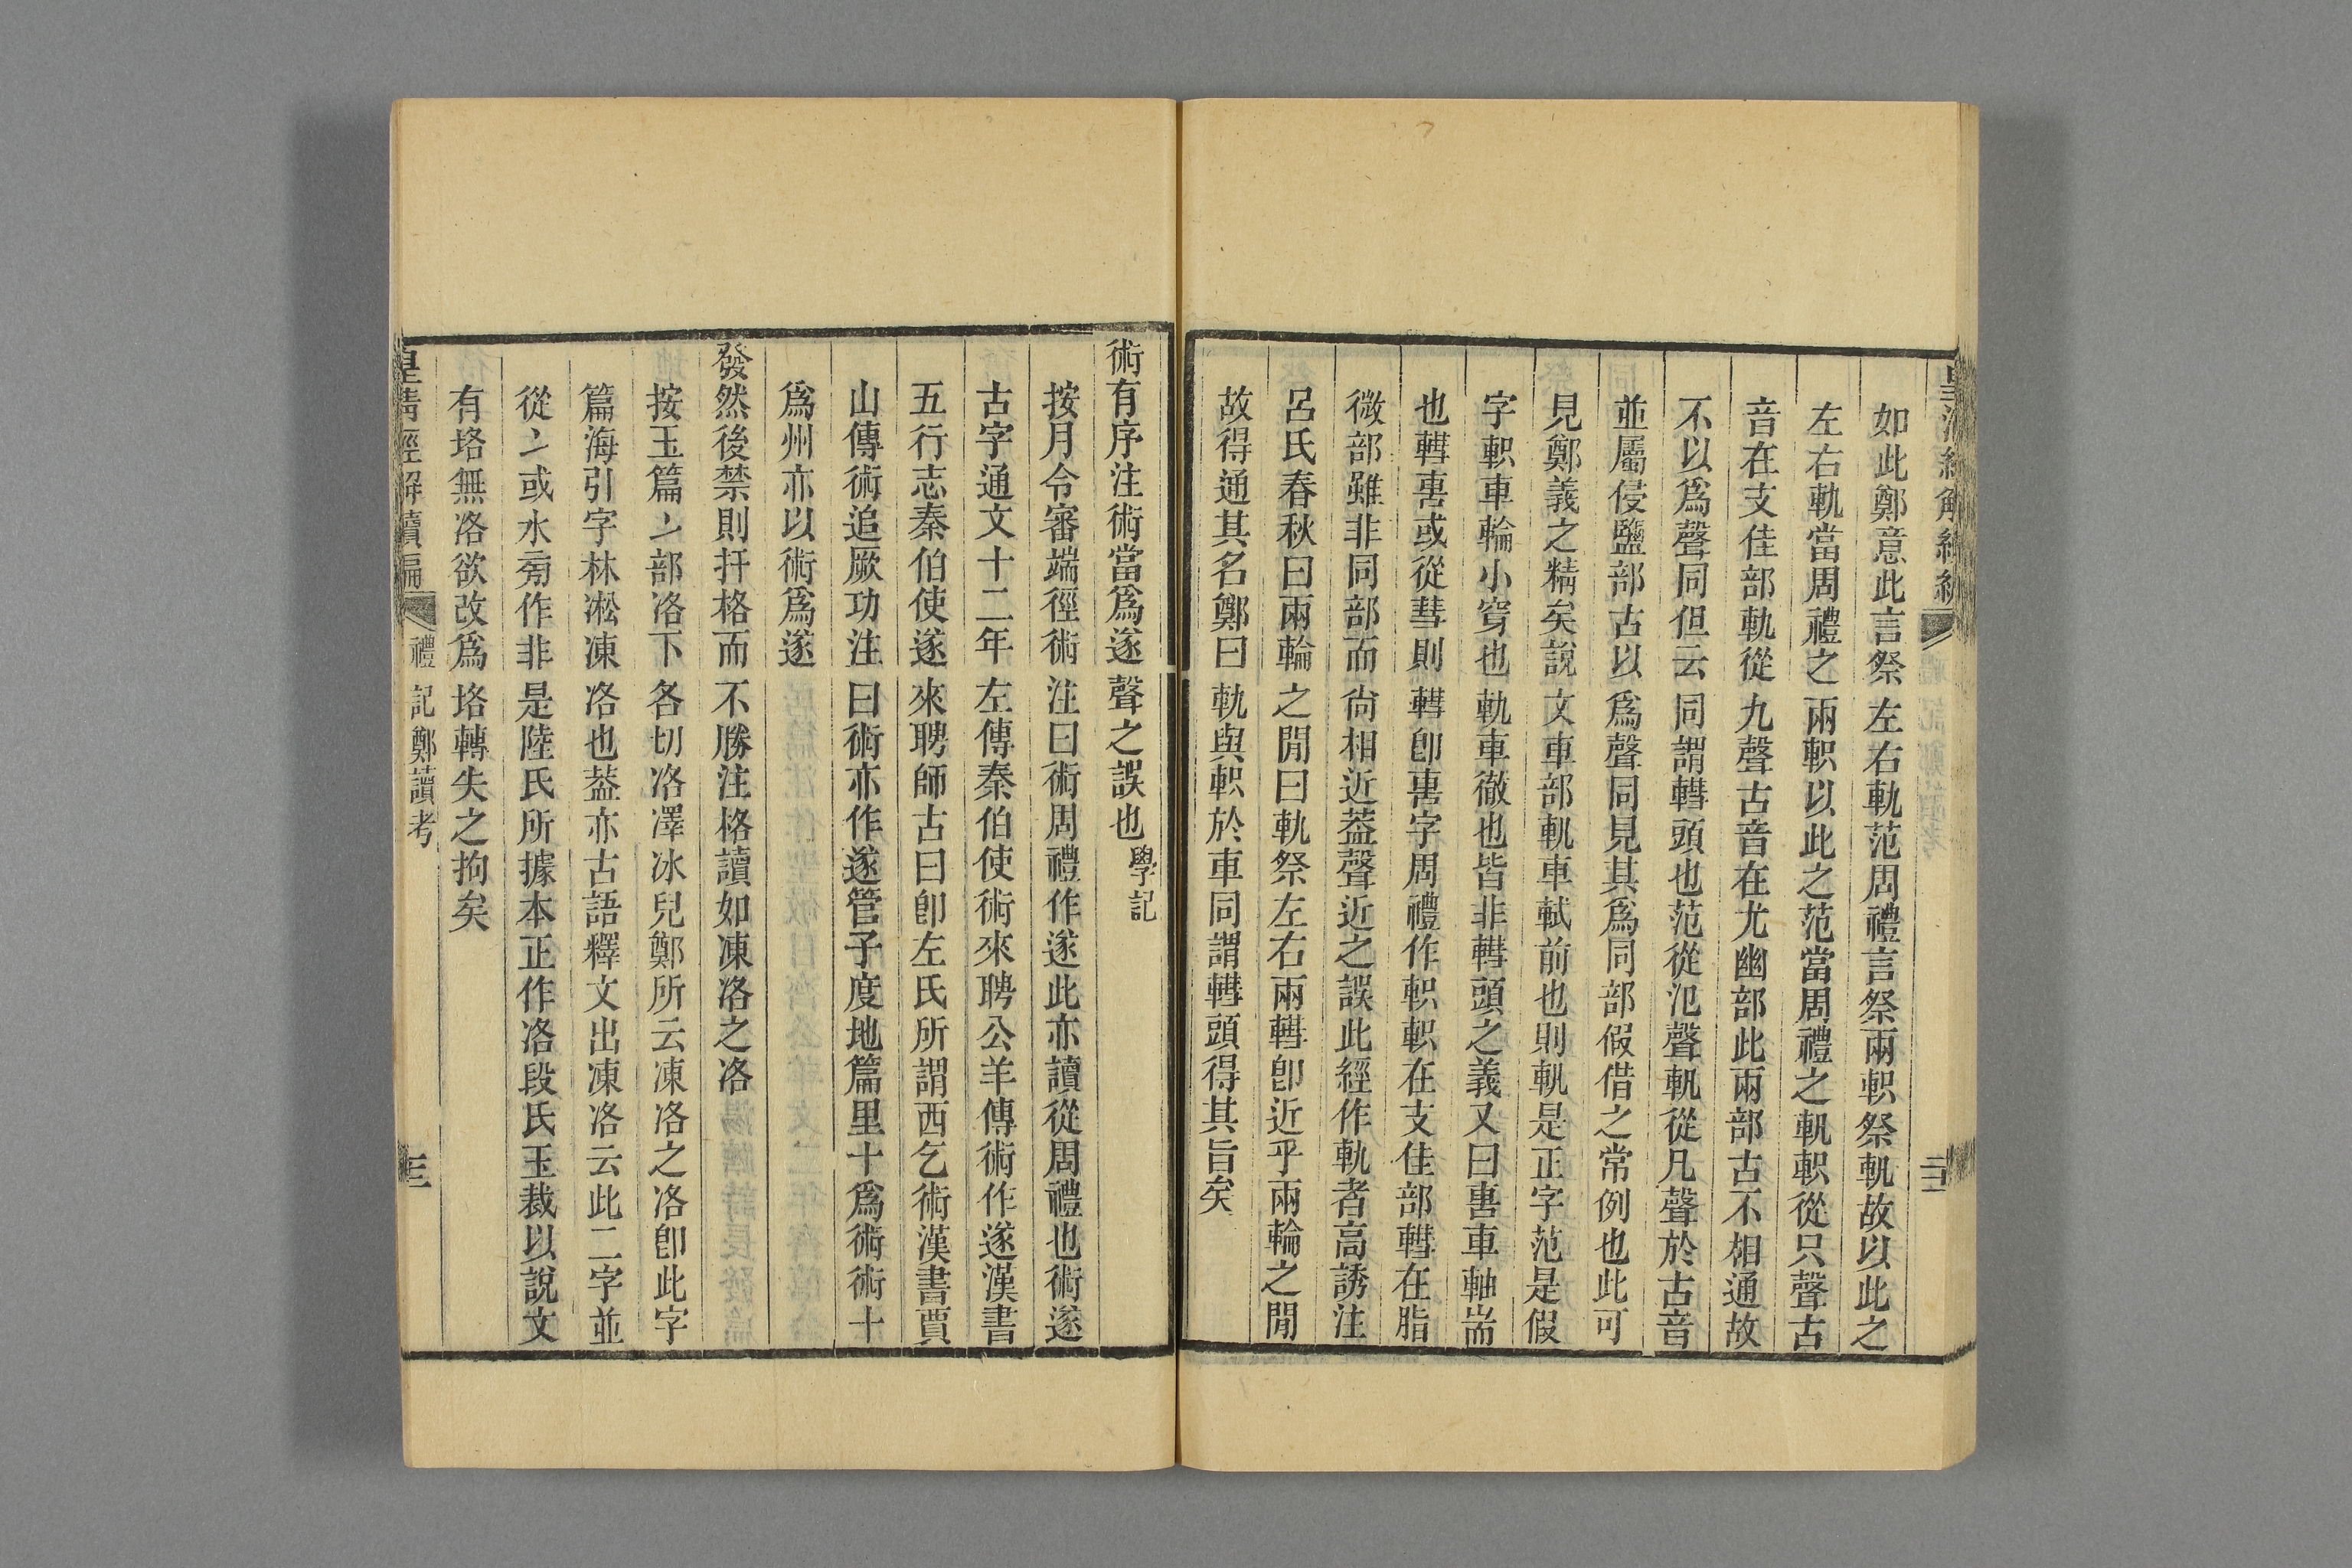 如此鄭意此言祭左右軌范周禮言祭兩軹祭軓故以此之
左右軌當周禮之兩軹以此之范當周禮之軓軹從只聲古
音在支佳部軌從九聲古音在尤幽部此兩部古不相通故
不以爲聲同但云同謂轊頭也范從氾聲軓從凡聲於古音
並屬侵鹽部古以爲聲同見其爲同部假借之常例也此可
見鄭義之精矣說文車部軓車軾前也則軓是正字范是假
字軹車輪小穿也軌車徹也皆非轊頭之義又曰軎車軸耑
也轊軎或從彗則轊卽軎字周禮作軹軹在支佳部轊在脂
微部雖非同部而尙相近葢聲近之誤此經作軌者高誘注
呂氏春秋曰兩輪之閒曰軌祭左右兩轊卽近乎兩輪之閒
故得通其名鄭曰軌與軹於車同謂轊頭得其旨矣
術有序注術當爲遂聲之誤也學記
按月令審端徑術注曰術周禮作遂此亦讀從周禮也術遂
古字通文十二年左傳秦伯使術來聘公羊傳術作遂漢書
五行志秦伯使遂來聘師古曰卽左氏所謂西乞術漢書賈
山傳術追厥功注曰術亦作遂管子度地篇里十爲術術十
爲州亦以術爲遂
發然後禁則扞格而不勝注格讀如凍洛之洛
按玉篇冫部洛下各切洛澤冰皃鄭所云凍洛之洛卽此字
篇海引字林凇凍洛也葢亦古語釋文出凍洛云此二字並
從冫或水旁作非是陸氏所據本正作洛段氏玉裁以說文
有垎無洛欲改爲垎轉失之拘矣
皇清經解續編 禮記鄭讀考 三